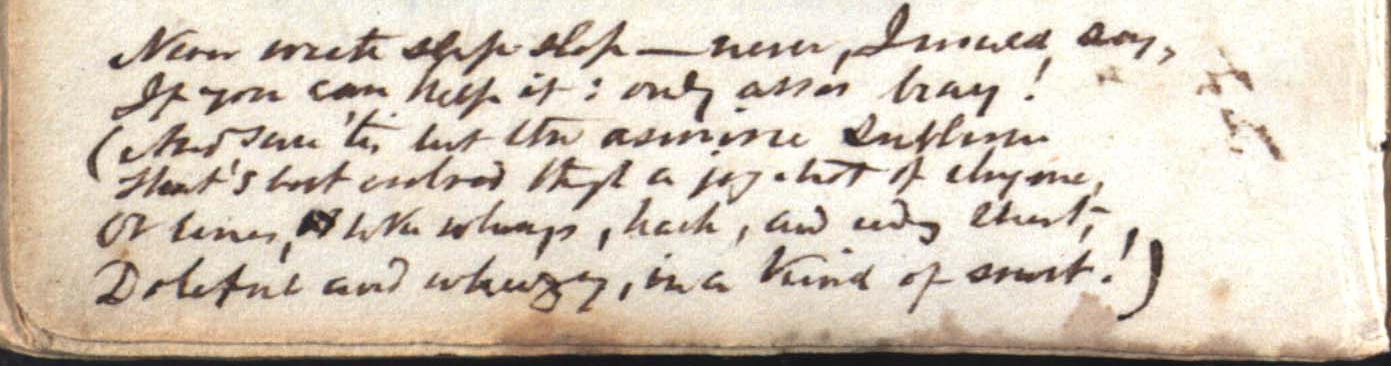 Never write slip slop — never, I would say,
If you can help it: only asses bray!
(And sure 'tis but the asinine sublime
That's best endured thro' a jog-trot of rhyme,
Of lines, like whoops, hack, and
Doleful and wheezy, in a kind of snort!)